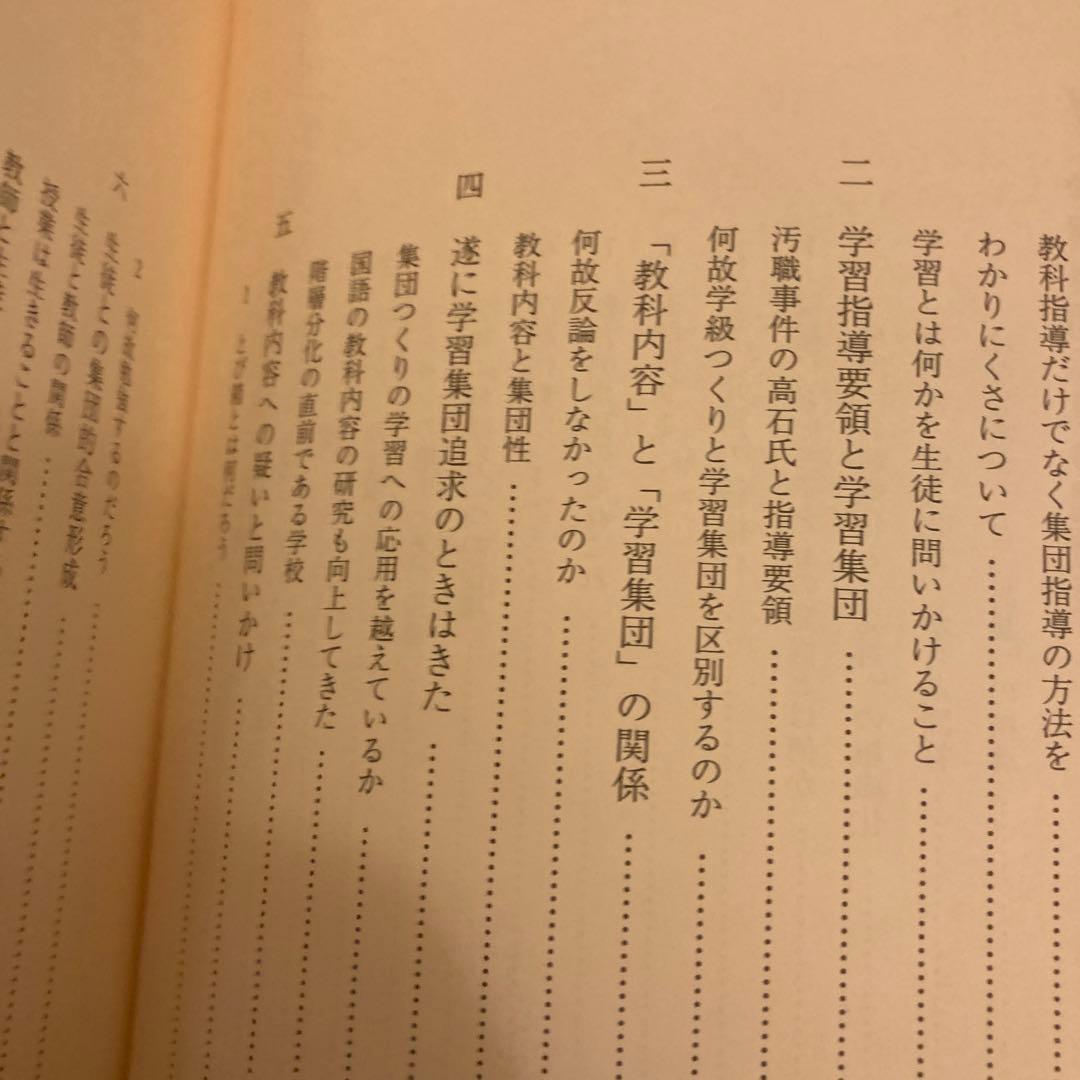 教科指導だけでなく集団指導の方法を…………
わかりにくさについて…………
学習とは何かを生徒に問いかけること…………
二 学習指導要領と学習集団…………
汚職事件の高石氏と指導要領…………
何故学級つくりと学習集団を区別するのか…………
三 「教科内容」と「学習集団」の関係…………
何故反論をしなかったのか…………
教科内容と集団性…………
四 遂に学習集団追求のときはきた…………
集団つくりの学習への応用を越えているか…………
国語の教科内容の研究も向上してきた…………
階層分化の直前である学校…………
五 教科内容への疑いと問いかけ…………
1
2 何故勉強するのだろう…………
生徒との集団的合意形成…………
生徒と教師の関係…………
六 授業は生きることと関係す
教師と生徒